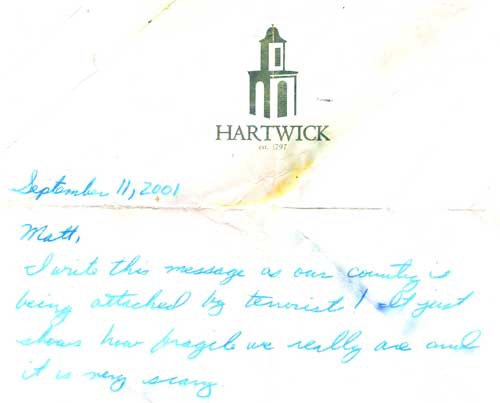 HARTWICK
est. 1797
September 11, 2001
Matt,
I write this message as our country is
being attached by terrorist! It just
shows how fragile we really are and
it is very scary.